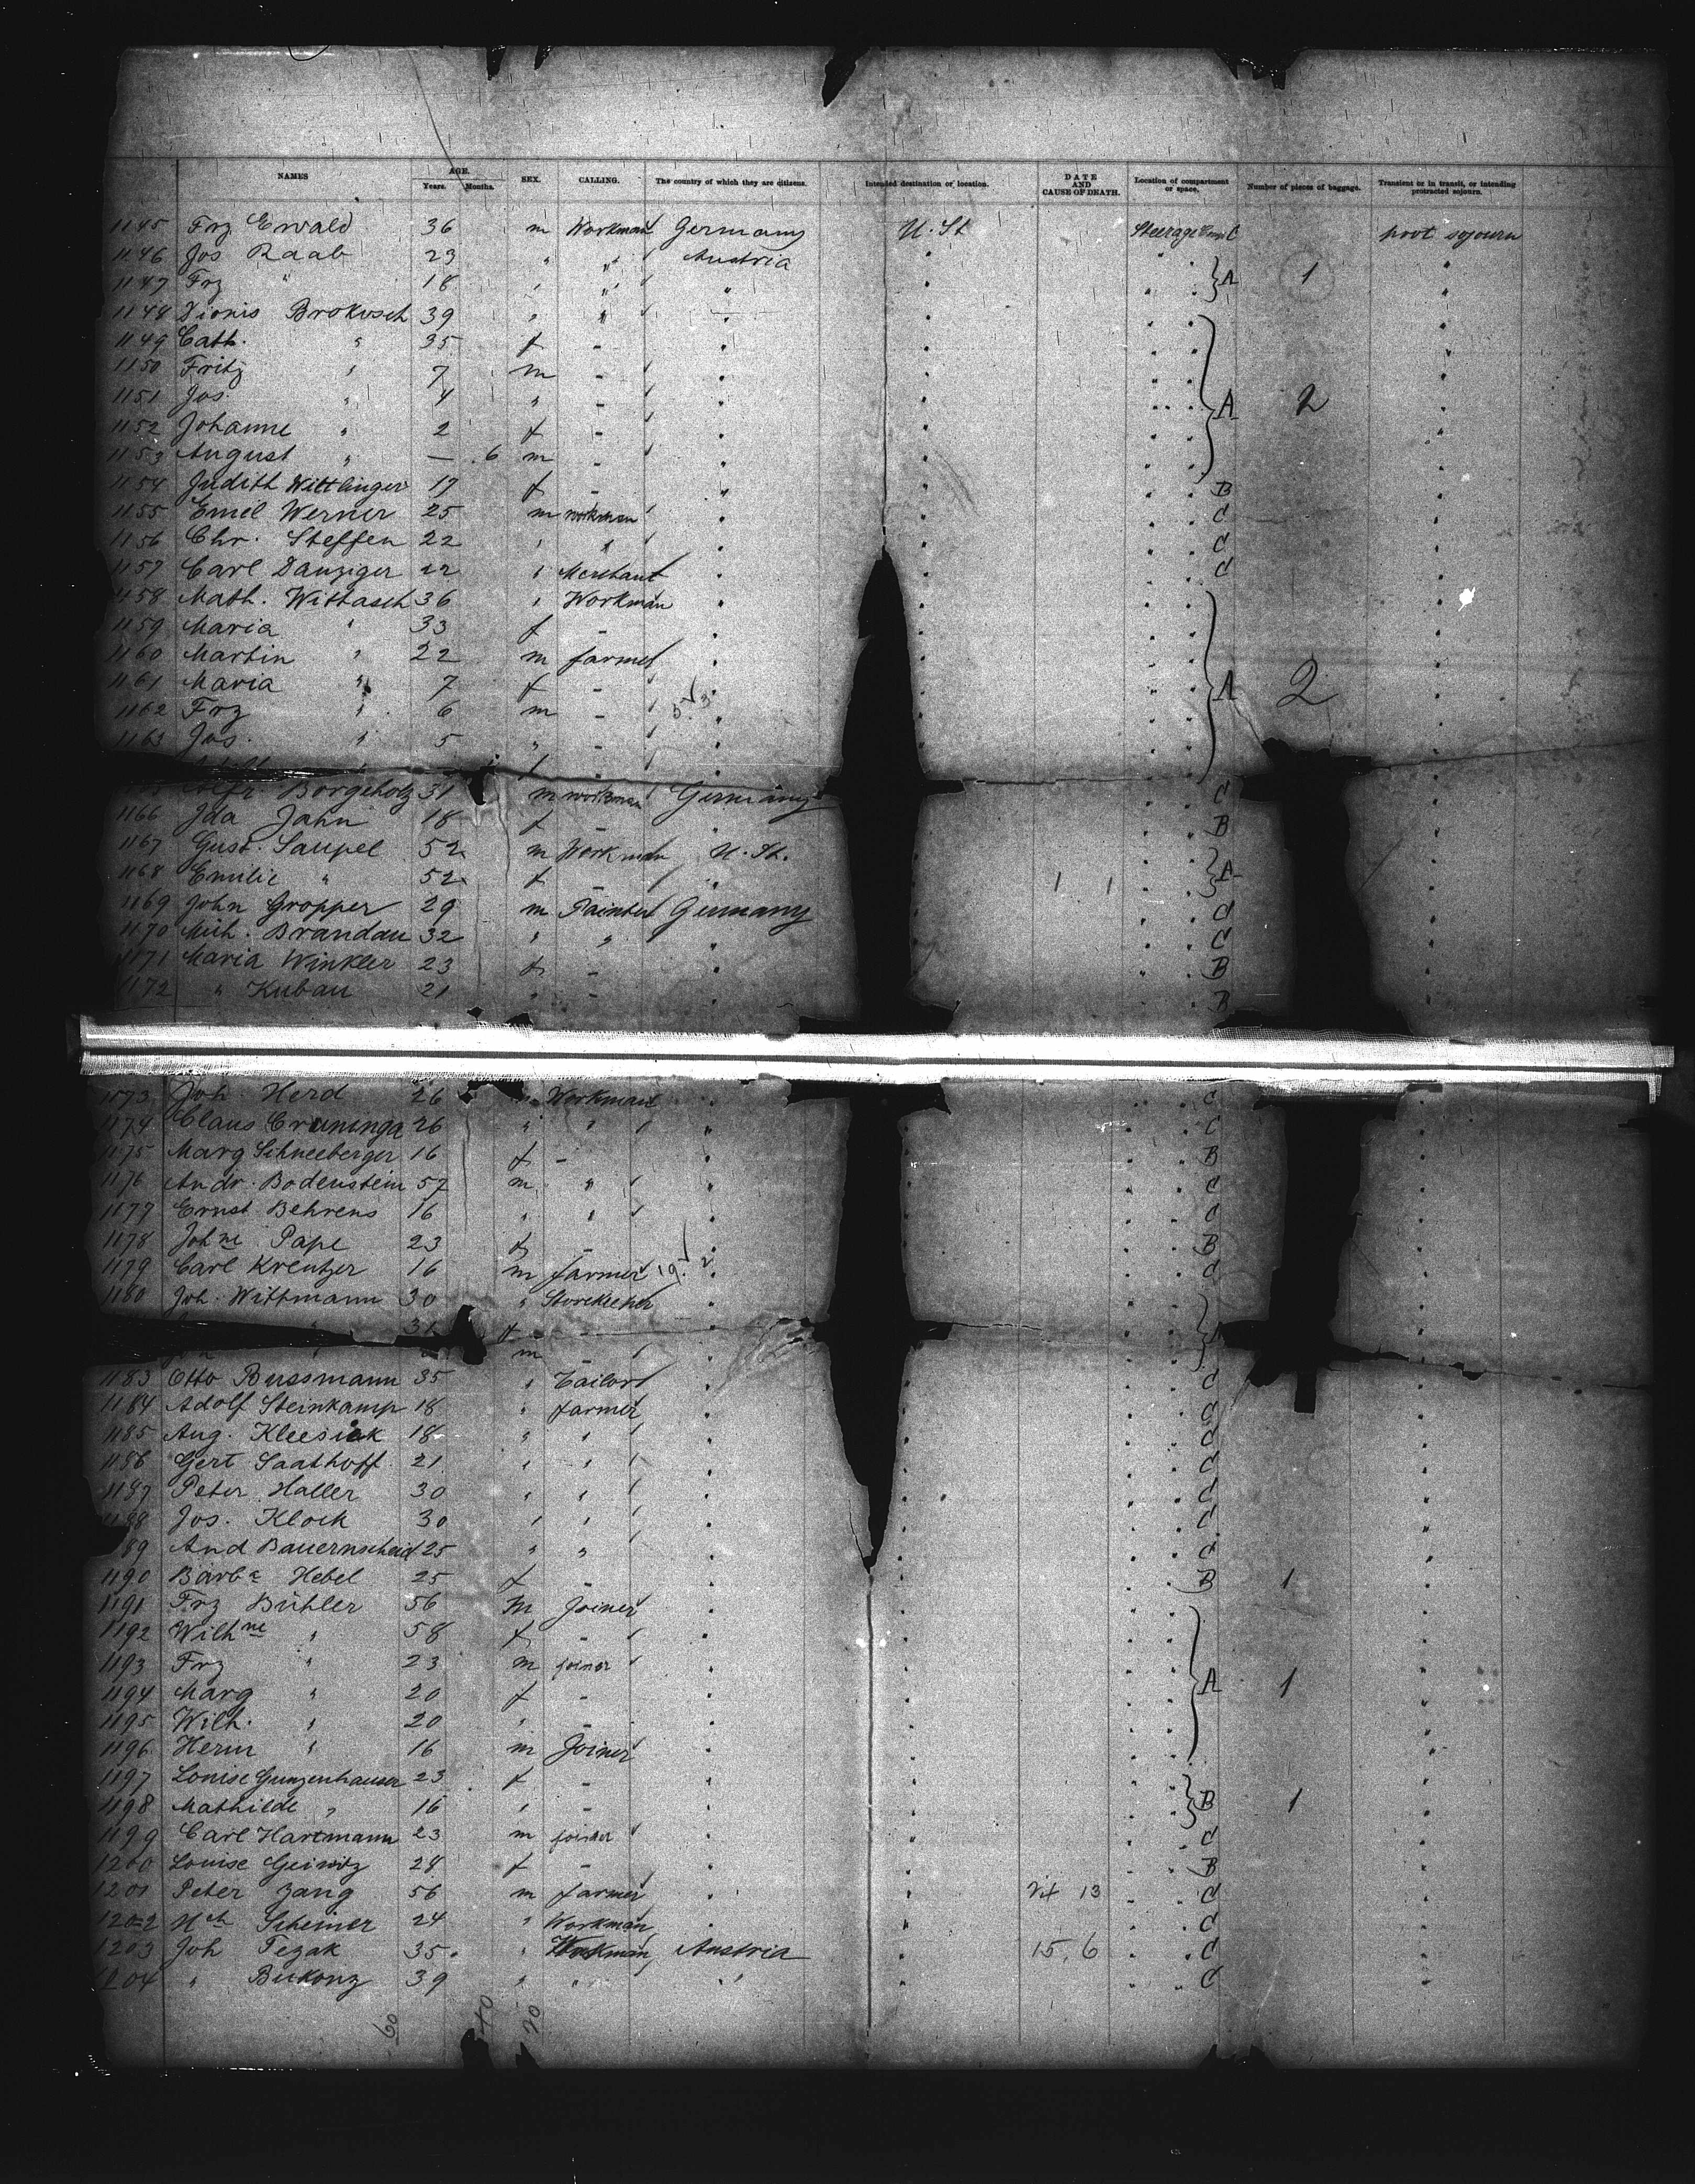 NAMES AGE. Years. Months. SEX. CALLING. The country of which they are citizens. Intended destination or location. DATE AND CAUSE OF DEATH. Location of compartment or space. Number of pieces of baggage. Transient or in transit, or intending protracted sojourn.
1145 Frz Ewald 36 m Workman Germany U. St Steerage C prot sojourn
1146 Jos Raab 23 " " Austria
1147 Frz " 18 " " " A 1
1148 Dionis Brokosch 39 " " "
1149 Cath. " 35 f - "
1150 Fritz " 7 m - "
1151 Jos. " 4 " - " A 2
1152 Johanne " 2 f - "
1153 August " — 6 m - "
1154 Judith Wittlinger 17 f - " B
1155 Emil Werner 25 m workman " C
1156 Chr. Steffen 22 " " " C
1157 Carl Danziger 22 " Merchant " C
1158 Math. Wittasch 36 " Workman "
1159 Maria " 33 f - "
1160 Martin " 22 m farmer "
1161 Maria " 7 f - " A 2
1162 Frz " 6 m - "
1163 Jos. " 5 " - "
Borgeholz 31 m workman Germany C
1166 Ida Jahn 18 f - " B
1167 Gust. Saupel 52 m Workman U. St.
1168 Emilie " 52 f - " A
1169 John Gropper 29 m Painter Germany C
1170 Mich. Brandau 32 " " " C
1171 Maria Winkler 23 f - " B
1172 " Kubau 21 " - " B
1173 Joh. Herd 26 Workman " C
1174 Claus Cruninga 26 " " " C
1175 Marg Schneeberger 16 f - " B
1176 Andr. Bodenstein 57 m " " C
1177 Ernst Behrens 16 " " " C
1178 Johne Pape 23 f - " B
1179 Carl Kreutzer 16 m farmer " C
1180 Joh. Wittmann 30 " Storekeeper "
" 31 f - "
" m - "
1183 Otto Bussmann 35 " Tailor " C
1184 Adolf Steinkamp 18 " farmer " C
1185 Aug. Kleesiek 18 " " " C
1186 Gert Saathoff 21 " " " C
1187 Peter Haller 30 " " " C
1188 Jos. Klock 30 " " " C
1189 And Bauernscheid 25 " " " C
1190 Barba Hebel 25 f - " B 1
1191 Frz Bühler 56 m Joiner "
1192 Wilhne " 58 f - "
1193 Frz " 23 m joiner "
1194 Marg " 20 f - " A 1
1195 Wilh. " 20 " - "
1196 Herm " 16 m Joiner "
1197 Louise Gunzenhauser 23 f - "
1198 Mathilde " 16 " - " B 1
1199 Carl Hartmann 23 m joiner " C
1200 Louise Geiwitz 28 f - " B
1201 Peter Zang 56 m farmer " 13 C
1202 Hch Scheiner 24 " Workman " C
1203 Joh Tezak 35 " Workman Austria 15. 6 C
1204 " Bukonz 39 " " " C
60 40 20